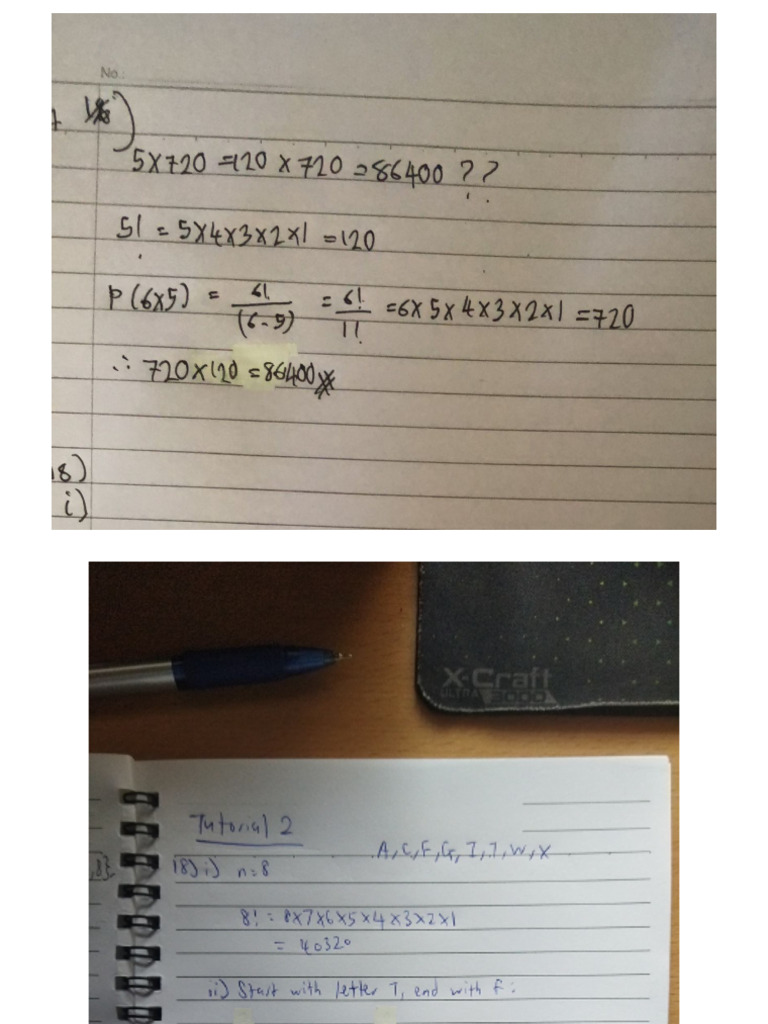 No.:
18)
5×720 =120 × 720 =86400 ??
5! = 5×4×3×2×1 =120
P(6×5) = 6!/(6-5) = 6!/1! =6×5×4×3×2×1 =720
∴ 720×120 =86400
18)
i)
X-Craft
ULTRA 3000
Tutorial 2
A, C, F, G, I, T, W, X
18) i) n=8
8! = 8×7×6×5×4×3×2×1
= 40320
ii) Start with letter T, end with F: